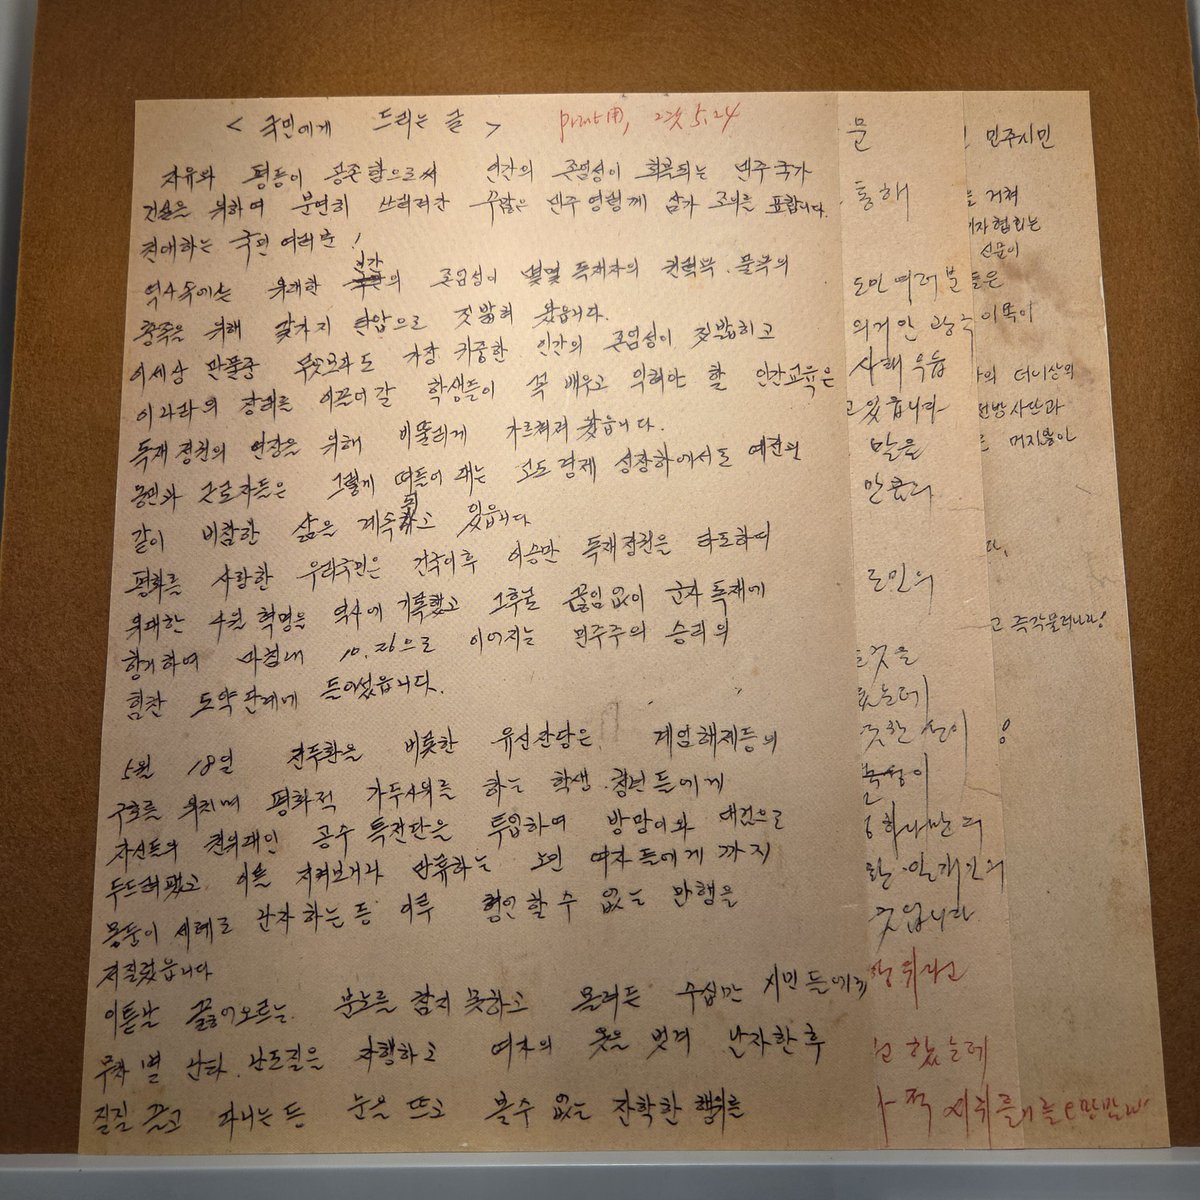 < 국민에게 드리는 글 > print用, 2次 5.24
자유와 평등이 공존함으로써 인간의 존엄성이 회복되는 민주국가
건설을 위하여 분연히 쓰러져간 수많은 민주 영령께 삼가 조의를 표합니다.
친애하는 국민 여러분!
역사속에는 위대한 인간의 존엄성이 몇몇 독재자의 권력욕·물욕의
충족을 위해 갖가지 탄압으로 짓밟혀 왔읍니다.
이세상 만물중 무엇보다도 가장 귀중한 인간의 존엄성이 짓밟히고
이나라의 장래를 이끌어갈 학생들이 꼭 배우고 익혀야 할 인간교육은
독재정권의 연장을 위해 비뚤리게 가르쳐져 왔읍니다.
농민과 근로자들은 그렇게 떠들어 대는 고도경제 성장하에서도 예전과
같이 비참한 삶을 계속하고 있읍니다
평화를 사랑한 우리국민은 건국이후 이승만 독재정권을 타도하여
위대한 4월 혁명을 역사에 기록했고 그후로 끊임없이 군사독재에
항거하여 마침내 10.26으로 이어지는 민주주의 승리의
힘찬 도약단계에 들어섰읍니다.
5월 18일 전두환을 비롯한 유신잔당은 계엄해제등의
구호를 외치며 평화적 가두시위를 하는 학생·청년들에게
자신들의 전위대인 공수 특전단을 투입하여 방망이와 대검으로
두드려팼고 이를 지켜보거나 만류하는 노인 여자들에게 까지
몽둥이 세례로 난자하는등 이루 형언할수 없는 만행을
저질렀읍니다
이튿날 끓어오르는 분노를 참지 못하고 몰려든 수십만 시민들에게
무차별 난타·난도질을 자행하고 여자의 옷을 벗겨 난자한후
질질 끌고 다니는 등 눈을 뜨고 볼수 없는 잔학한 행위를
문
통해
도민 여러분
의거인 광주
사해
고있읍니다
말을
만큼
도민의
것을
는데
못한
이
하나만
일개인의
것입니다
라고
했는데
적
민주시민
를 거쳐
기자협회는
신문이
들은
이 똑이
의 더이상의
전방사단과
머지않아
다.
고 즉각물러나라!